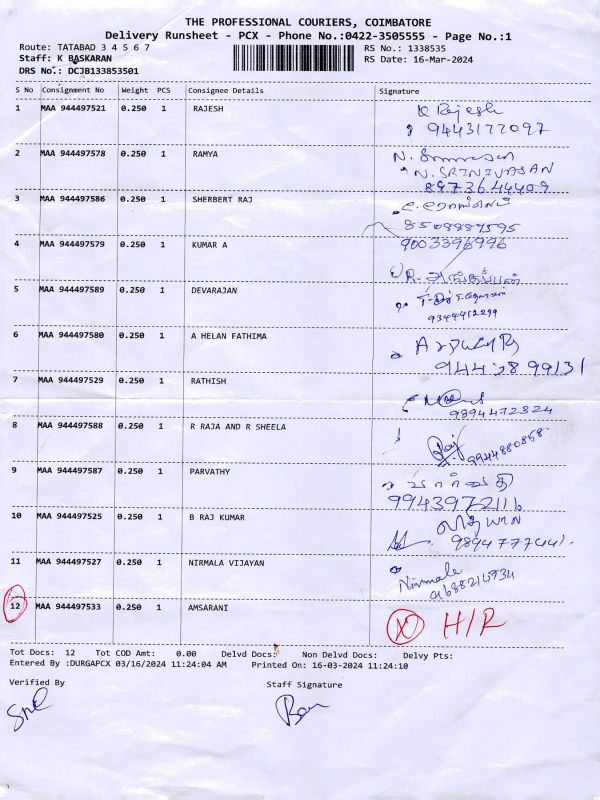 THE PROFESSIONAL COURIERS, COIMBATORE
Delivery Runsheet - PCX - Phone No.:0422-3505555 - Page No.:1
Route: TATABAD 3 4 5 6 7 RS No.: 1338535
Staff: K BASKARAN RS Date: 16-Mar-2024
DRS No.: DCJB133853501
S No Consignment No Weight PCS Consignee Details Signature
1 MAA 944497521 0.250 1 RAJESH K Rajesh
9443177097
2 MAA 944497578 0.250 1 RAMYA N. Srinivasan
N. SRINIVASAN
8973644409
3 MAA 944497586 0.250 1 SHERBERT RAJ
8508887595
4 MAA 944497579 0.250 1 KUMAR A 9003396996
5 MAA 944497589 0.250 1 DEVARAJAN
9344412299
6 MAA 944497580 0.250 1 A HELAN FATHIMA
7 MAA 944497529 0.250 1 RATHISH
9894472324
8 MAA 944497588 0.250 1 R RAJA AND R SHEELA
Raj 9944880858
9 MAA 944497587 0.250 1 PARVATHY பார்வதி
10 MAA 944497525 0.250 1 B RAJ KUMAR
11 MAA 944497527 0.250 1 NIRMALA VIJAYAN Nirmala
12 MAA 944497533 0.250 1 AMSARANI X H/R
Tot Docs: 12 Tot COD Amt: 0.00 Delvd Docs: Non Delvd Docs: Delvy Pts:
Entered By :DURGAPCX 03/16/2024 11:24:04 AM Printed On: 16-03-2024 11:24:10
Verified By Staff Signature